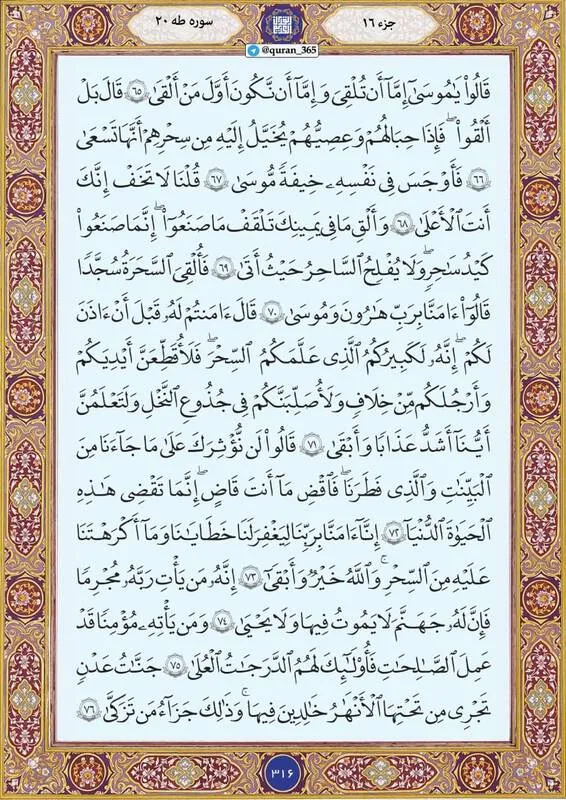 جزء ۱۶
سوره طه ۲۰
@quran_365
قَالُواْ يَٰمُوسَىٰٓ إِمَّآ أَن تُلۡقِيَ وَإِمَّآ أَن نَّكُونَ أَوَّلَ مَنۡ أَلۡقَىٰ ۶۵ قَالَ بَلۡ
أَلۡقُواْۖ فَإِذَا حِبَالُهُمۡ وَعِصِيُّهُمۡ يُخَيَّلُ إِلَيۡهِ مِن سِحۡرِهِمۡ أَنَّهَا تَسۡعَىٰ
۶۶ فَأَوۡجَسَ فِي نَفۡسِهِۦ خِيفَةٗ مُّوسَىٰ ۶۷ قُلۡنَا لَا تَخَفۡ إِنَّكَ
أَنتَ ٱلۡأَعۡلَىٰ ۶۸ وَأَلۡقِ مَا فِي يَمِينِكَ تَلۡقَفۡ مَا صَنَعُوٓاْۖ إِنَّمَا صَنَعُواْ
كَيۡدُ سَٰحِرٖۖ وَلَا يُفۡلِحُ ٱلسَّاحِرُ حَيۡثُ أَتَىٰ ۶۹ فَأُلۡقِيَ ٱلسَّحَرَةُ سُجَّدٗا
قَالُوٓاْ ءَامَنَّا بِرَبِّ هَٰرُونَ وَمُوسَىٰ ۷۰ قَالَ ءَامَنتُمۡ لَهُۥ قَبۡلَ أَنۡ ءَاذَنَ
لَكُمۡۖ إِنَّهُۥ لَكَبِيرُكُمُ ٱلَّذِي عَلَّمَكُمُ ٱلسِّحۡرَۖ فَلَأُقَطِّعَنَّ أَيۡدِيَكُمۡ
وَأَرۡجُلَكُم مِّنۡ خِلَٰفٖ وَلَأُصَلِّبَنَّكُمۡ فِي جُذُوعِ ٱلنَّخۡلِ وَلَتَعۡلَمُنَّ
أَيُّنَآ أَشَدُّ عَذَابٗا وَأَبۡقَىٰ ۷۱ قَالُواْ لَن نُّؤۡثِرَكَ عَلَىٰ مَا جَآءَنَا مِنَ
ٱلۡبَيِّنَٰتِ وَٱلَّذِي فَطَرَنَاۖ فَٱقۡضِ مَآ أَنتَ قَاضٍۖ إِنَّمَا تَقۡضِي هَٰذِهِ
ٱلۡحَيَوٰةَ ٱلدُّنۡيَآ ۷۲ إِنَّآ ءَامَنَّا بِرَبِّنَا لِيَغۡفِرَ لَنَا خَطَٰيَٰنَا وَمَآ أَكۡرَهۡتَنَا
عَلَيۡهِ مِنَ ٱلسِّحۡرِۗ وَٱللَّهُ خَيۡرٞ وَأَبۡقَىٰٓ ۷۳ إِنَّهُۥ مَن يَأۡتِ رَبَّهُۥ مُجۡرِمٗا
فَإِنَّ لَهُۥ جَهَنَّمَ لَا يَمُوتُ فِيهَا وَلَا يَحۡيَىٰ ۷۴ وَمَن يَأۡتِهِۦ مُؤۡمِنٗا قَدۡ
عَمِلَ ٱلصَّٰلِحَٰتِ فَأُوْلَٰٓئِكَ لَهُمُ ٱلدَّرَجَٰتُ ٱلۡعُلَىٰ ۷۵ جَنَّٰتُ عَدۡنٖ
تَجۡرِي مِن تَحۡتِهَا ٱلۡأَنۡهَٰرُ خَٰلِدِينَ فِيهَاۚ وَذَٰلِكَ جَزَآءُ مَن تَزَكَّىٰ ۷۶
۳۱۶